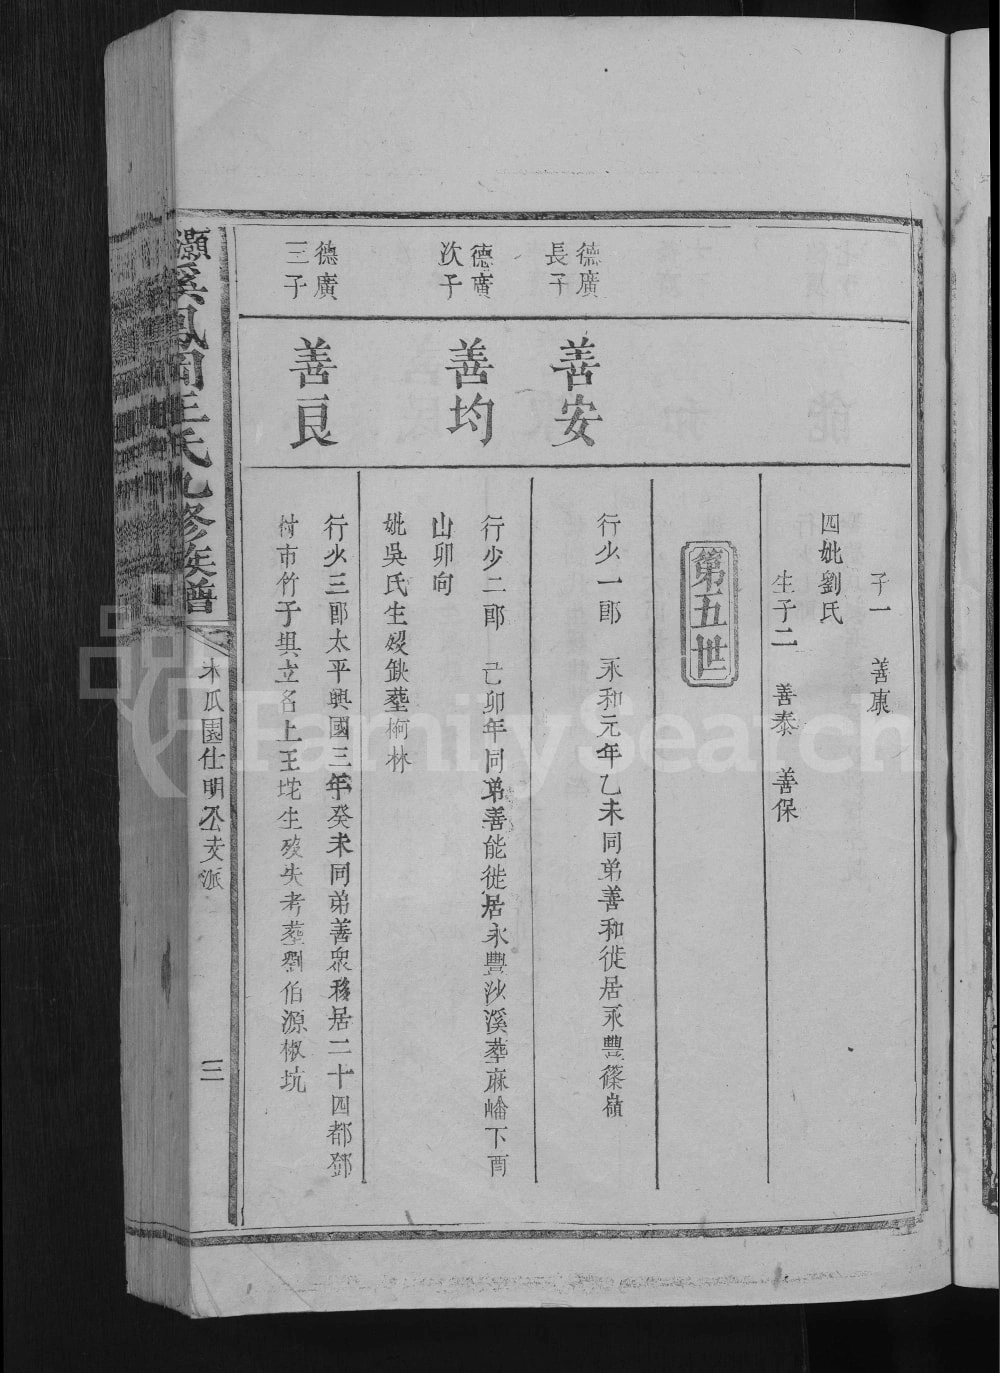 子一　善康
四妣劉氏
生子二　善泰　善保
第五世
德廣
長子
善安
行少一郎　永和元年乙未同弟善和徙居永豐篠嶺
德廣
次子
善均
行少二郎　己卯年同弟善能徙居永豐沙溪塟麻嶓下酉
山卯向
妣吳氏生歿缺塟柯林
德廣
三子
善良
行少三郎太平興國三年癸未同弟善衆移居二十四都鄧
村市竹于與立名上王坨生歿失考塟劉伯源椒坑
灝溪鳳岡王氏九修族譜
木瓜園仕明公支派
三
FamilySearch